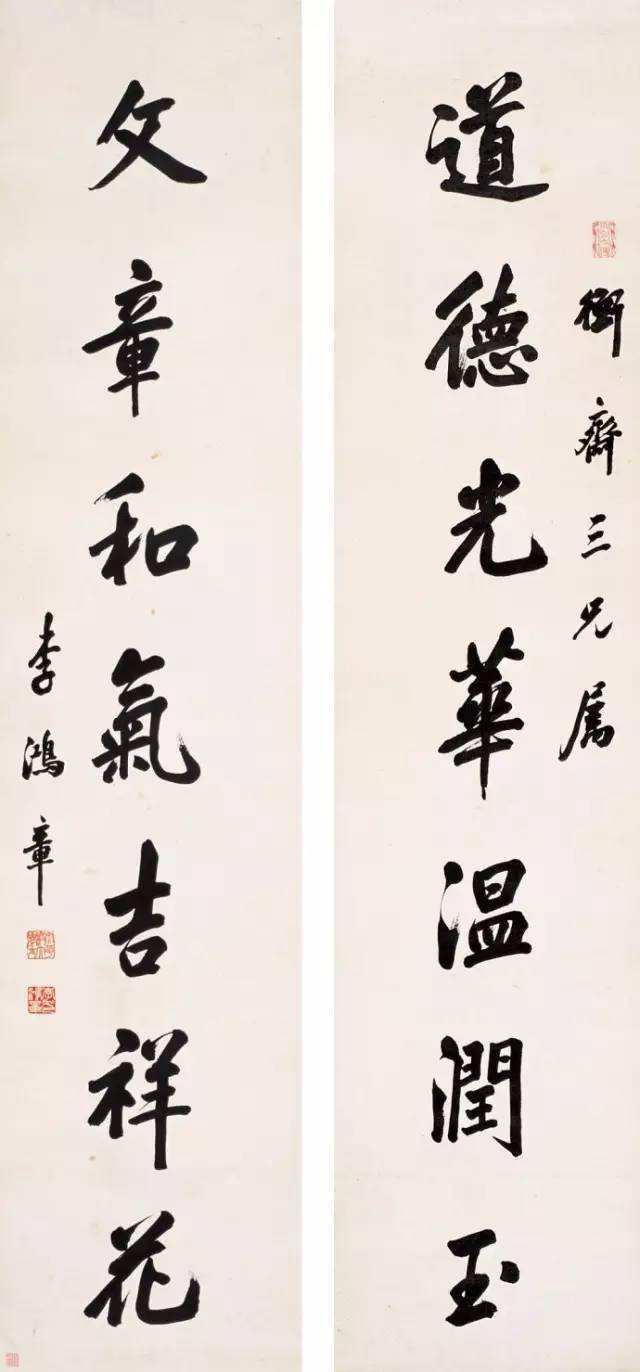 衡齋三兄屬
道德光華温潤玉
文章和氣吉祥花
李鴻章